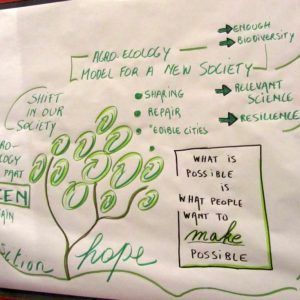 ENOUGH
BIODIVERSITY
AGRO-ECOLOGY
MODEL FOR A NEW SOCIETY
SHIFT
IN OUR
SOCIETY
SHARING
REPAIR
"EDIBLE CITIES
RELEVANT
SCIENCE
RESILIENCE
OLOGY
PART
EEN
AIN
WHAT IS
POSSIBLE
IS
WHAT PEOPLE
WANT TO
make
POSSIBLE
action
hope